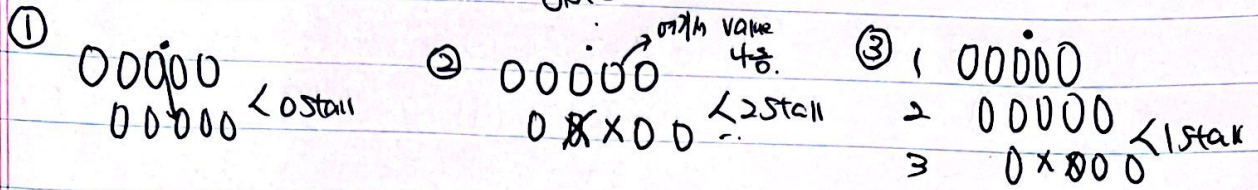 ① 00000
00000 <0 stall
② 00000 여기서 value
0XX00 <2 stall
③ 1 00000
2 00000
3 0X000 <1 stall